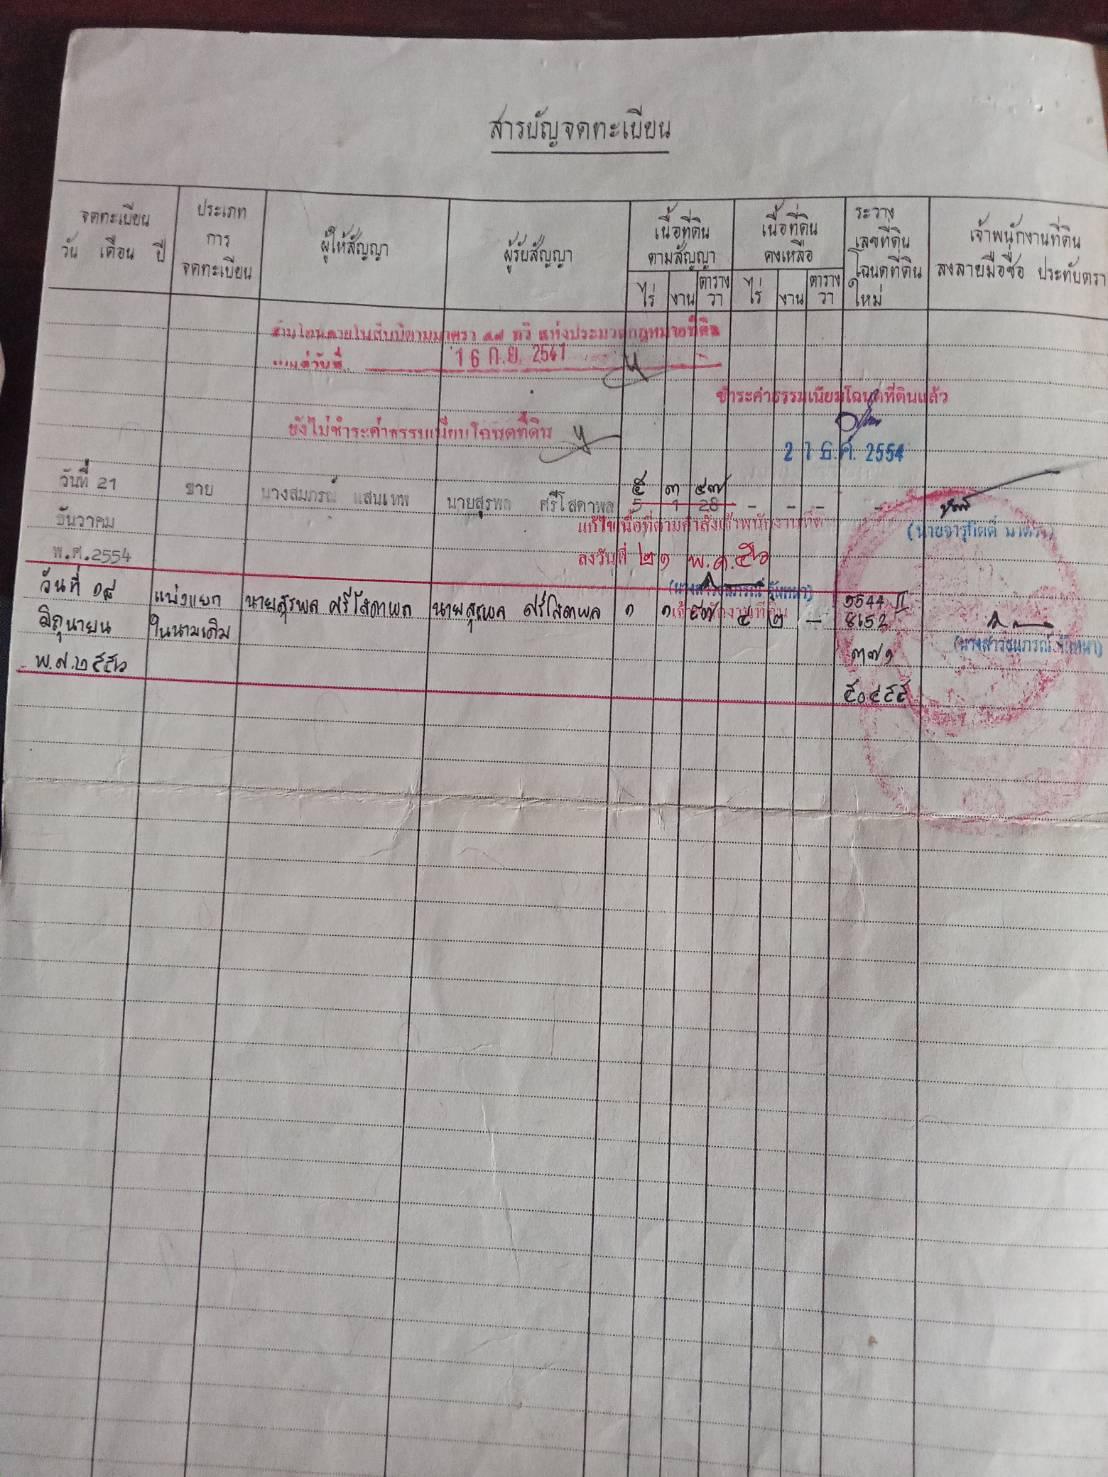 สารบัญจดทะเบียน
จดทะเบียน
วัน เดือน ปี
ประเภท
การ
จดทะเบียน
ผู้ให้สัญญา
ผู้รับสัญญา
เนื้อที่ดิน
ตามสัญญา
ไร่ งาน ตาราง
วา
เนื้อที่ดิน
คงเหลือ
ไร่ งาน ตาราง
วา
ระวาง
เลขที่ดิน
โฉนดที่ดิน
ใหม่
เจ้าพนักงานที่ดิน
ลงลายมือชื่อ ประทับตรา
ห้ามโอนภายในสิบปีตามมาตรา ๕๘ ทวิ แห่งประมวลกฎหมายที่ดิน
16 ก.ย. 2541
ชำระค่าธรรมเนียมโฉนดที่ดินแล้ว
ยังไม่ชำระค่าธรรมเนียมโฉนดที่ดิน
21 ธ.ค. 2554
๕ ๓ ๔๗
วันที่ 21 ขาย นางสมภรณ์ แสนเทพ นายสุรพล ศรีโสดาพล 5 1 28 - - - -
ธันวาคม
พ.ศ.2554
แก้ไขเนื้อที่ตามคำสั่งเจ้าพนักงานที่ดิน
ลงวันที่ ๒๑ พ.ค. ๕๖
วันที่ ๑๘ แบ่งแยก นายสุรพล ศรีโสดาพล นายสุรพล ศรีโสดาพล ๑ ๑ ๔๗ ๔ ๒ - 5544 II
มิถุนายน ในนามเดิม 8152
พ.ศ.๒๕๕๖ ๓๗๑
๕๐๔๕๕
เจ้าพนักงานที่ดิน